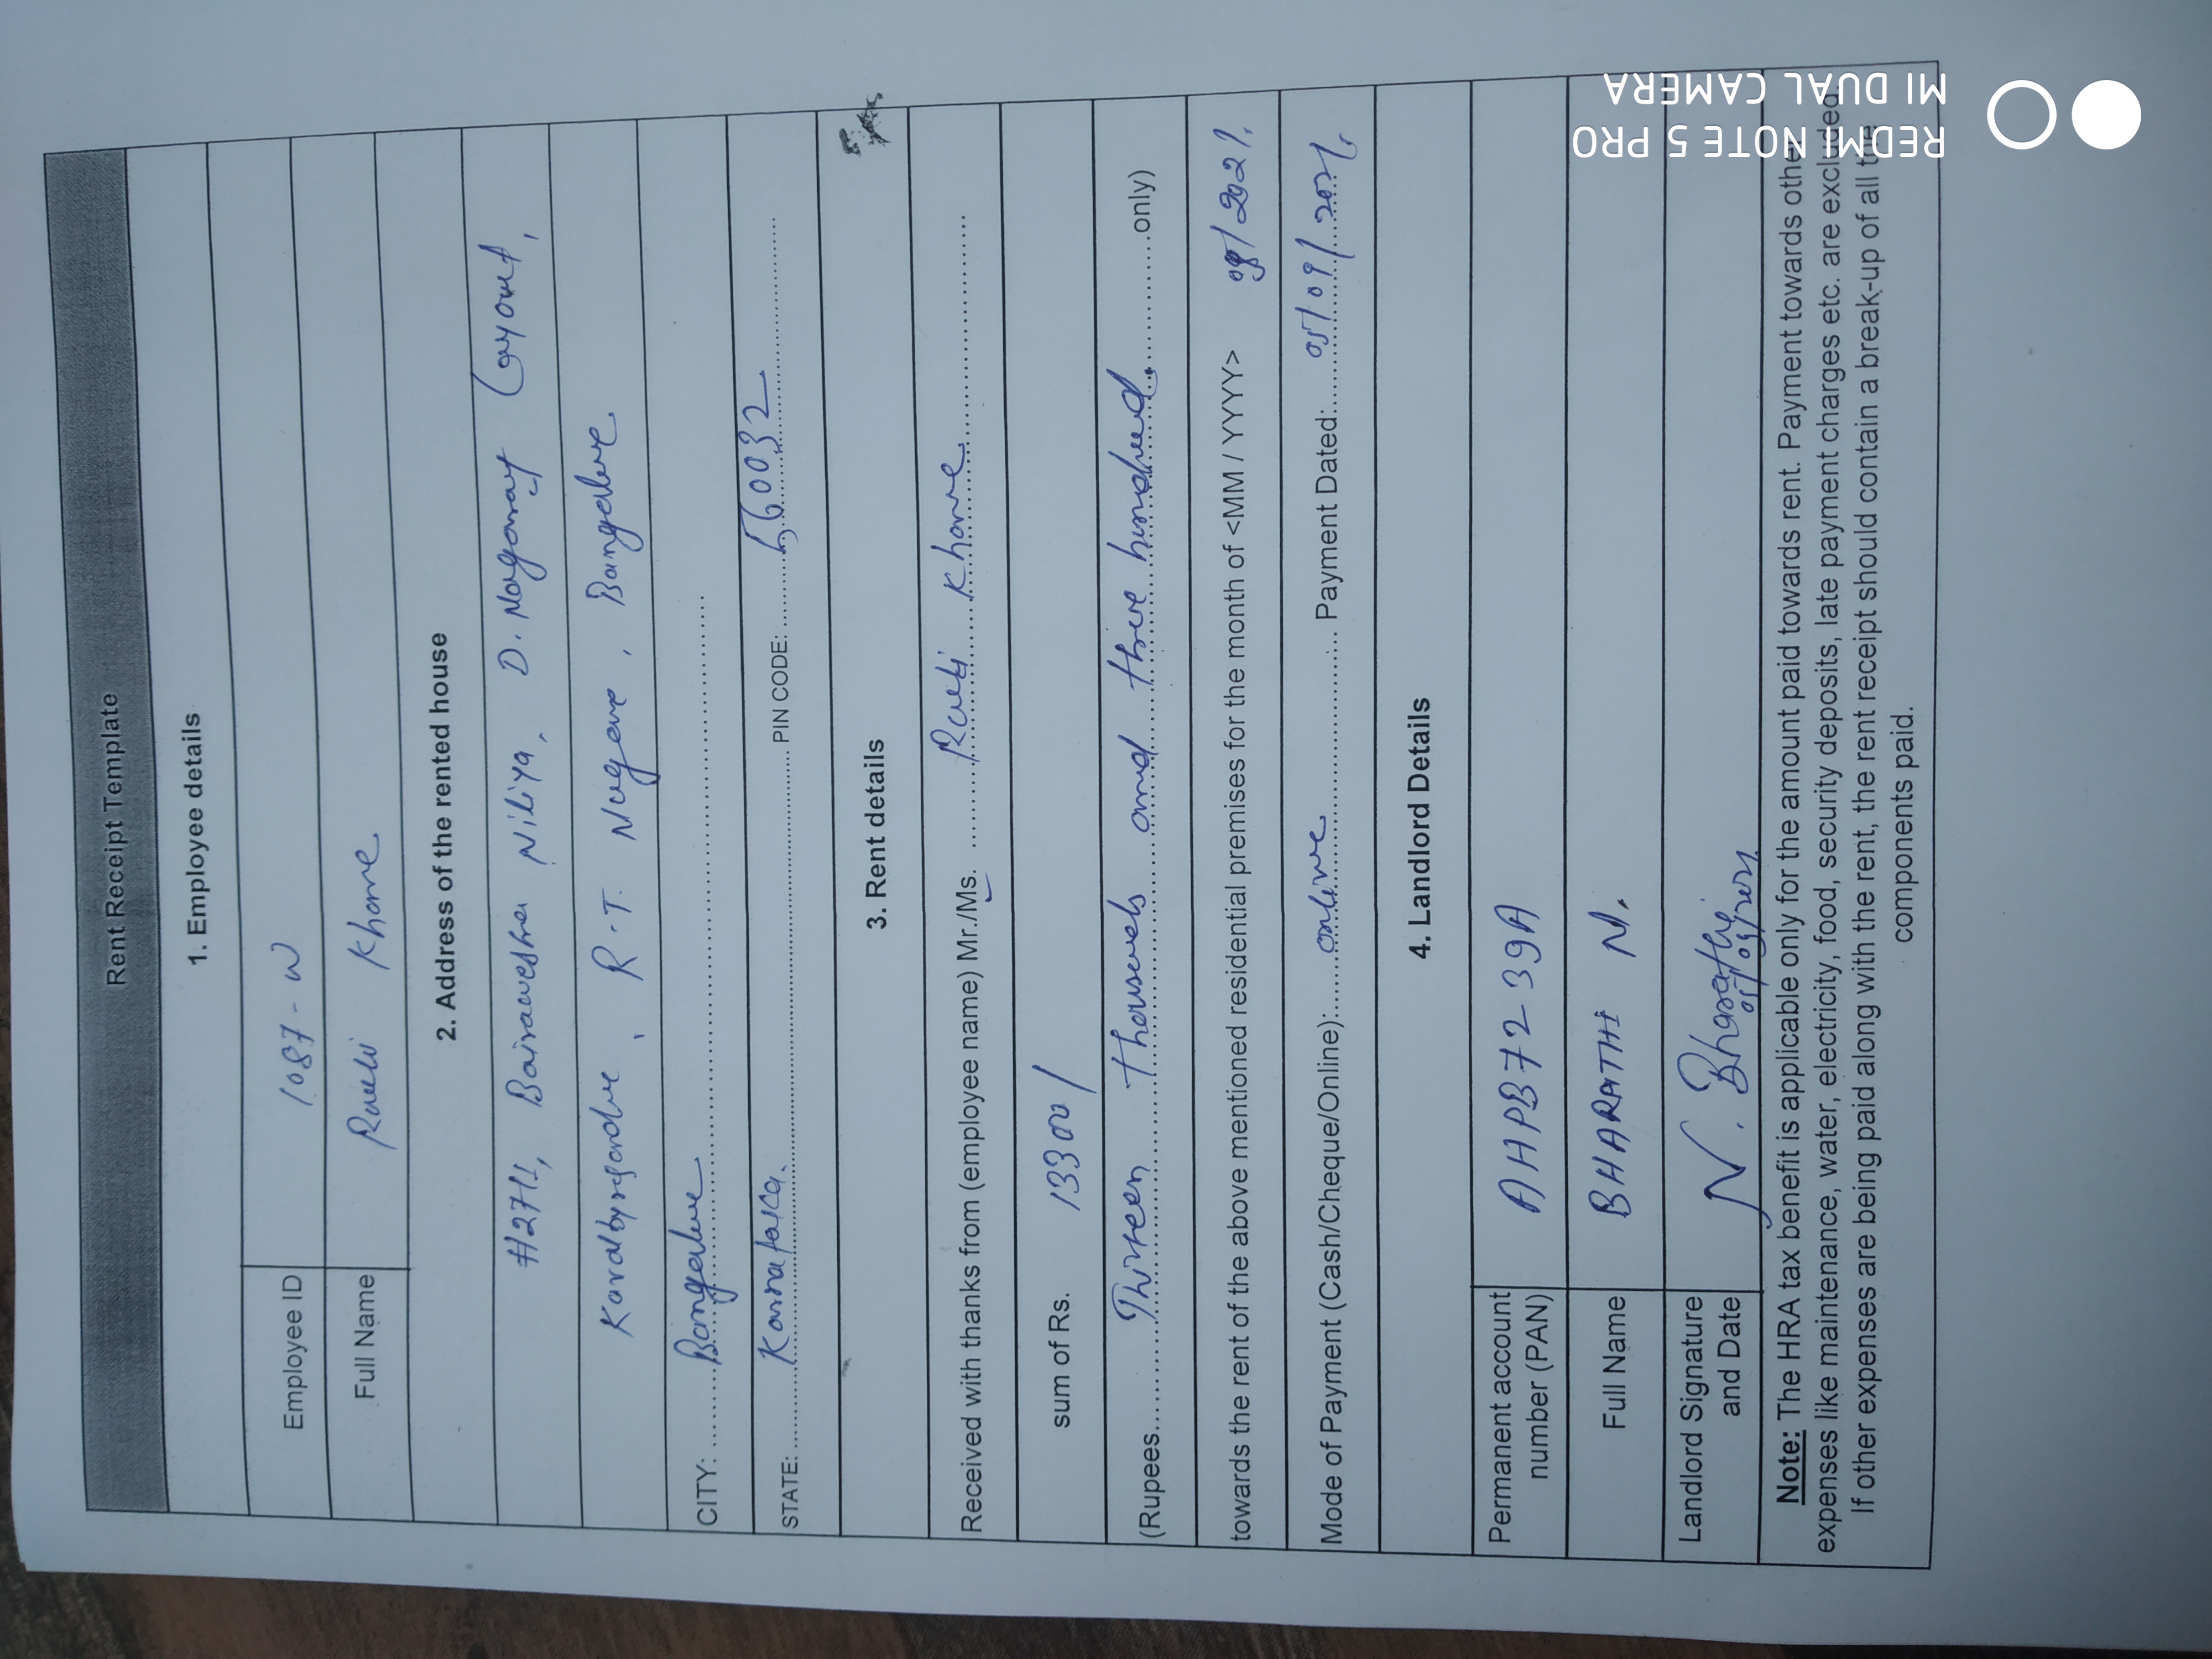 Rent Receipt Template
1. Employee details
Employee ID 1087-W
Full Name Khane
2. Address of the rented house
Niliya, D. Nagaraj Layout,
R.T. Nagar, Bangalore
CITY: Bangalore
STATE: Karnataka. PIN CODE: 560032
3. Rent details
Received with thanks from (employee name) Mr./Ms. Khane
sum of Rs. 13300/
(Rupees Thirteen thousands and three hundred only)
towards the rent of the above mentioned residential premises for the month of <MM / YYYY> 08/2021.
Mode of Payment (Cash/Cheque/Online): online Payment Dated: 05/09/2021.
4. Landlord Details
Permanent account
number (PAN) AHPB7239A
Full Name BHARATHI N.
Landlord Signature
and Date N. Bharathi
05/09/2021
Note: The HRA tax benefit is applicable only for the amount paid towards rent. Payment towards other
expenses like maintenance, water, electricity, food, security deposits, late payment charges etc. are excluded.
If other expenses are being paid along with the rent, the rent receipt should contain a break-up of all the
components paid.
REDMI NOTE 5 PRO
MI DUAL CAMERA